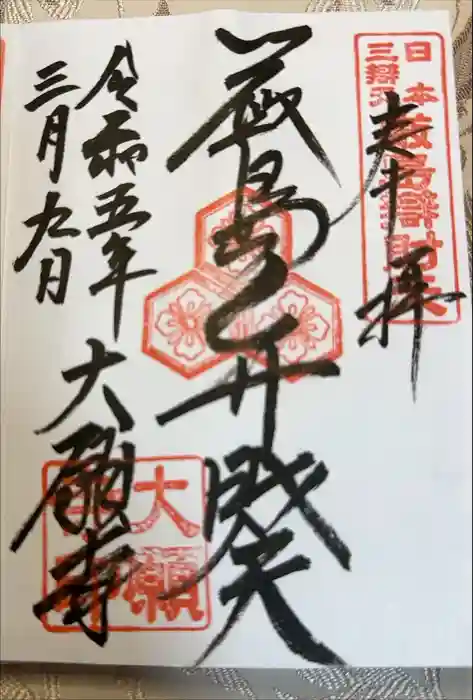 奉拝
日本
三辯天
厳島辯財天
厳島弁財天
令和五年
三月九日
大願寺
大願寺印